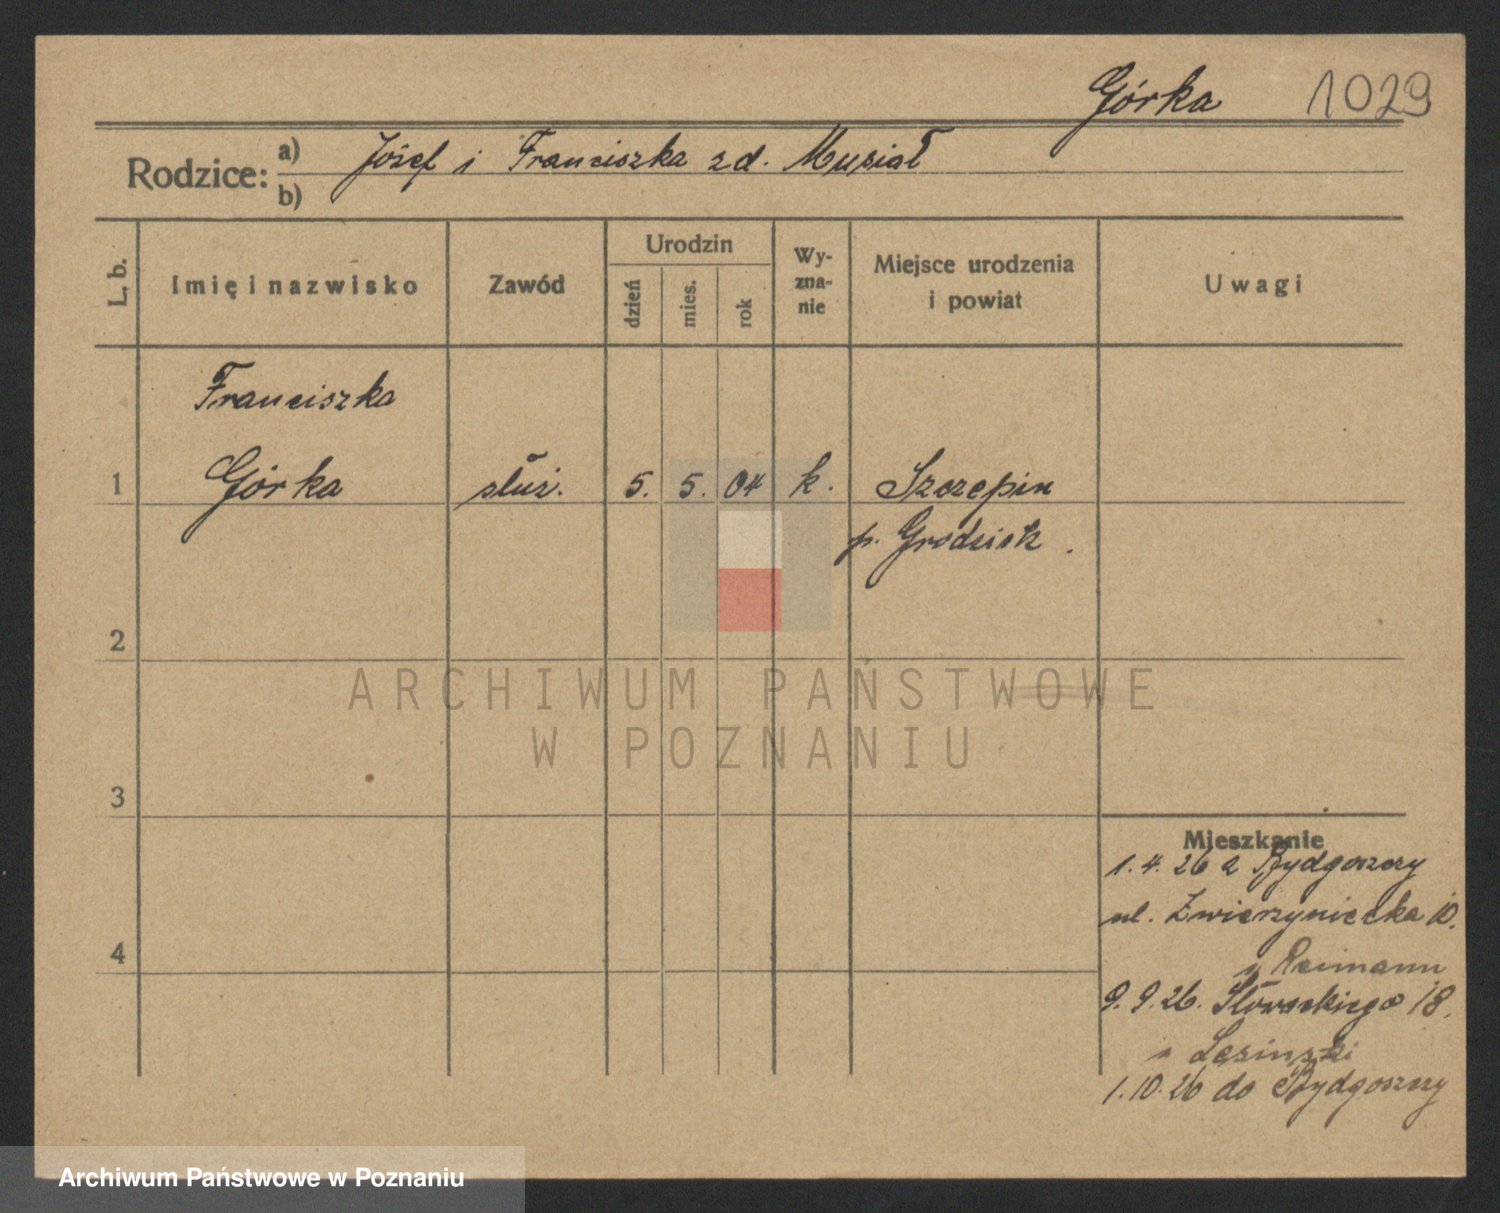 Górka 1029
Rodzice: a) Józef i Franciszka zd. Musiał
b)
L. b. Imię i nazwisko Zawód Urodzin dzień mies. rok Wyznanie Miejsce urodzenia i powiat Uwagi
Franciszka
1 Górka służ. 5. 5. 04 k. Szczepin
p. Grodzisk.
2
ARCHIWUM PAŃSTWOWE
W POZNANIU
3
Mieszkanie
1.4.26 z Bydgoszczy
ul. Zwierzyniecka 10.
Reimann
4
9.9.26. Słowackiego 18.
Lesinski
1.10.26 do Bydgoszczy
Archiwum Państwowe w Poznaniu